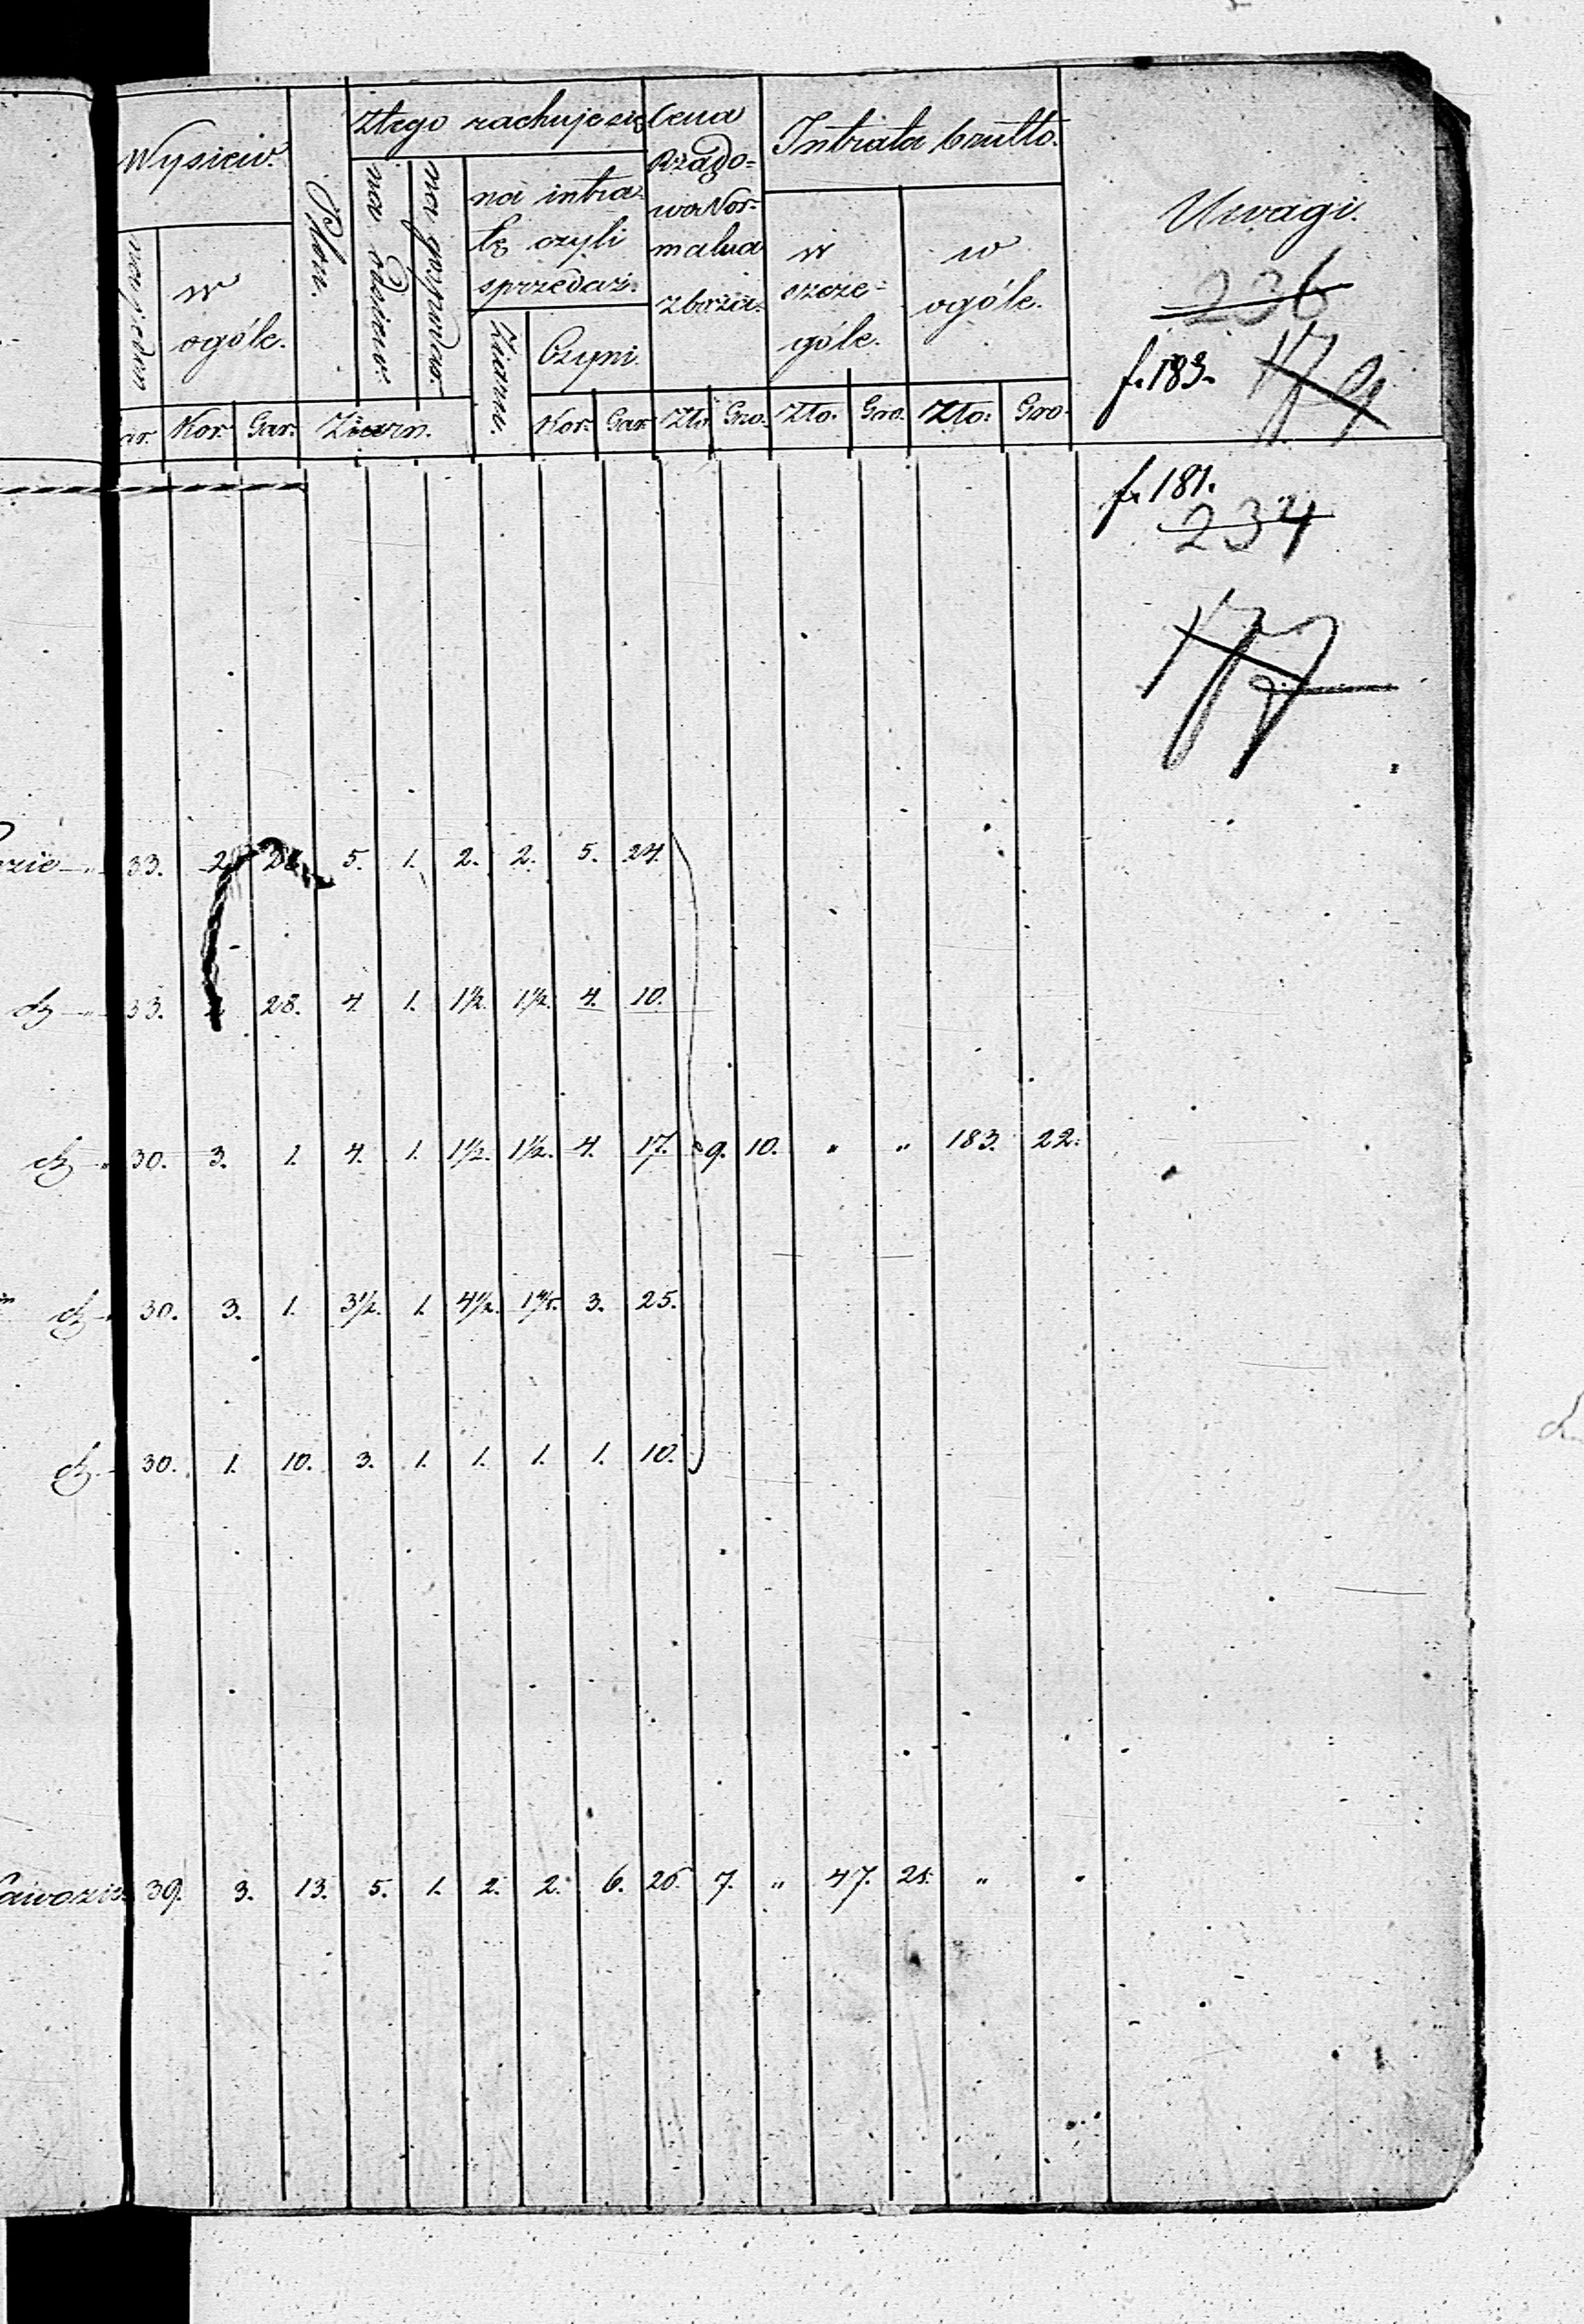 Wysiew.
na jeden
w
ogóle.
Plon.
Ztego rachuje się
na odsiew.
na gospodar.
na intra=
tę czyli
sprzedaż.
Ziarn.
Czyni.
Cena
Rządo=
wa Nor=
malna
zboża.
Intrata brutto.
w
szcze=
góle.
w
ogóle.
Uwagi.
236
f. 183.
ar. Kor. Gar. Ziarn. Kor. Gar. Zło. Gro. Zło. Gro. Zło: Gro.
f. 181.
234
177
zie 33. 2. 28. 5. 1. 2. 2. 5. 24.
33. 28. 4. 1. 1½. 1½. 4. 10.
30. 3. 1. 4. 1. 1½. 1½. 4. 17. 9. 10. " " 183. 22.
30. 3. 1. 3½. 1. 3. 25.
30. 1. 10. 3. 1. 1. 1. 1. 10.
39. 3. 13. 5. 1. 2. 2. 6. 26. 7. " 47. 21. " "